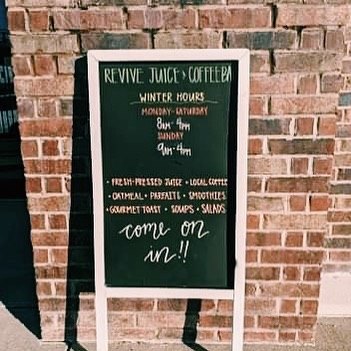 REVIVE JUICE + COFFEE BA
WINTER HOURS
MONDAY-SATURDAY
8AM-4PM
SUNDAY
9AM-4PM
• FRESH-PRESSED JUICE • LOCAL COFFEE
• OATMEAL • PARFAITS • SMOOTHIES
• GOURMET TOAST • SOUPS • SALADS
come on
in!!